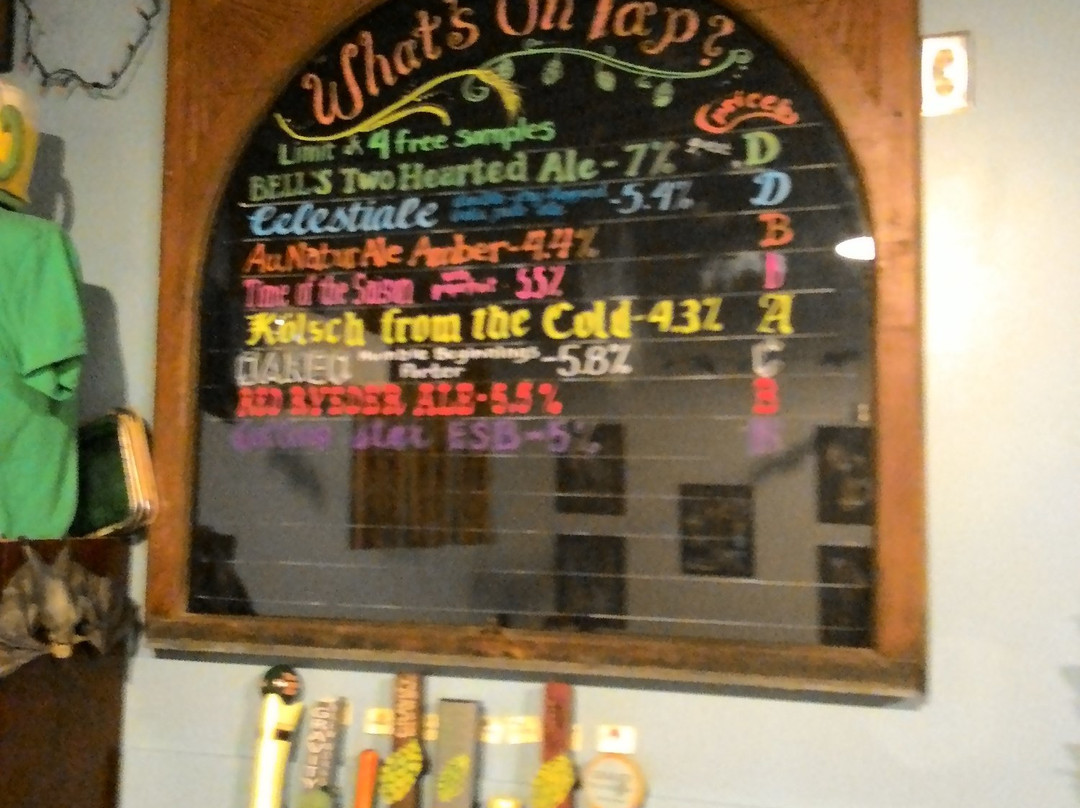 What's On Tap?
Prices
Limit 4 free samples
BELL'S Two Hearted Ale - 7% D
Celestiale - 5.4% D
Au Natur Ale Amber - 4.4% B
Time of the Saison - 5.5%
Kölsch from the Cold - 4.3% A
OAKED Humble Beginnings Porter - 5.8% C
RED RYEDER ALE - 5.5% B
ESB - 5%